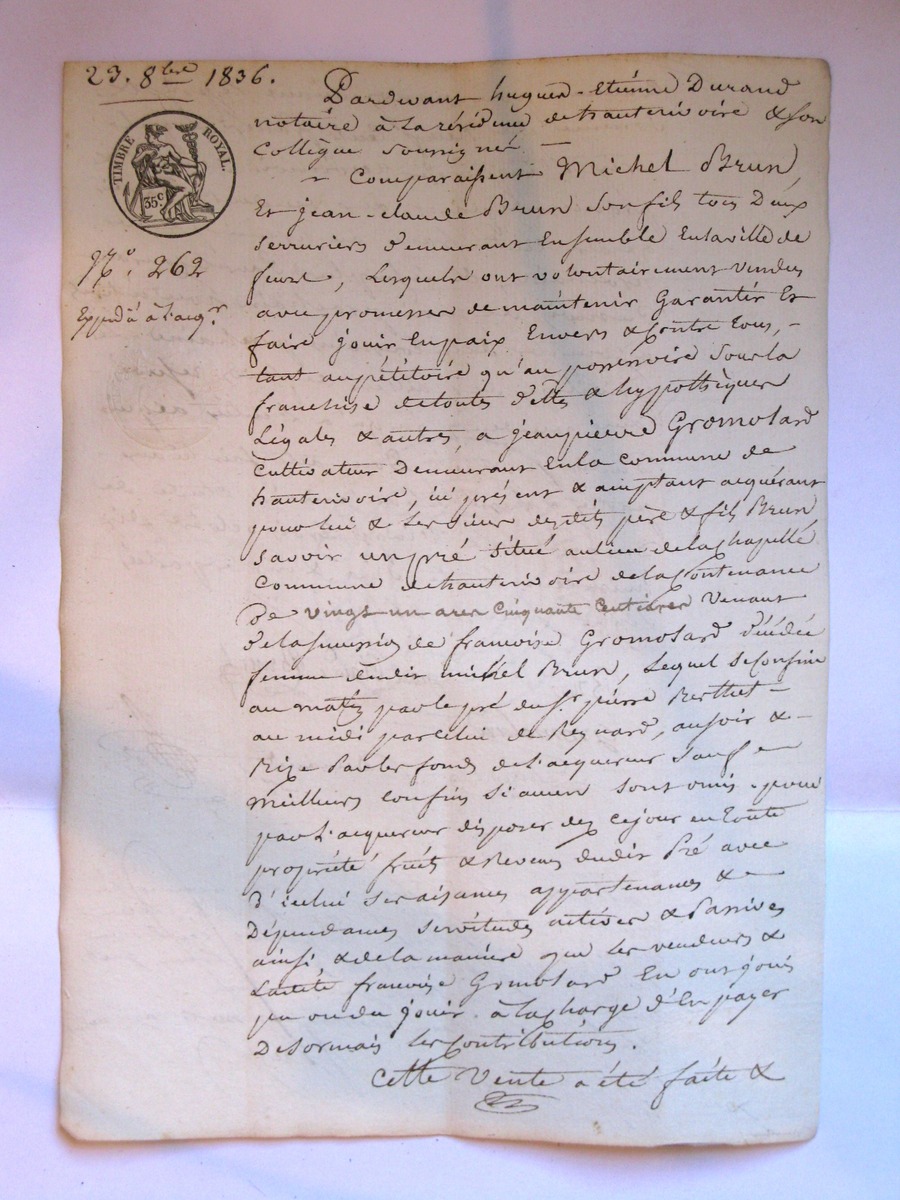 23. 8bre 1836.
TIMBRE ROYAL.
35 c.
N.° 262
Expédié à l'acqr.
Pardevant hugues-Etiénne Durand
notaire à la résidence de hauterivoire & son
Collègue soussigné
Comparaissent Michel Brun,
Et jean-claude Brun son fils tous Deux
serruriers demeurant Ensemble En la ville de
feurs, Lesquels ont volontairement vendu
avec promesse de maintenir Garantir Et
faire jouir En paix Envers & Contre tous, -
tant au pétitoire qu'au possessoire sous la
franchise de toutes dettes & hypothèques
Légales & autres, a jean pierre Gromolard
Cultivateur Demeurant En la commune de
hauterivoire, ici présent & acceptant acquérant
pour lui & les siens desdits père & fils Brun,
savoir un pré situé au lieu de la chapelle
Commune de hauterivoire de la Contenance
De vingt un ares Cinquante Centiares Venant
de la succession de francoise Gromolard décédée
femme dudit michel Brun, Lequel se Confine
au matin par le pré du Sr. pierre Berthet -
au midi par celui de Reynard, au soir & -
Bize Par les fonds de l'acquereur sauf
meilleurs confins si aucun sont omis. pour
par l'acquereur disposer dez ce jour en toute
propriété fruits & Revenus dudit Pré avec
d'icelui ses aisances appartenances &
Dépendances servitudes actives & Passives
ainsi & de la manière que les vendeurs &
Ladite francoise Gromolard En ont joui
pu ou du jouir. à la charge d'En payer
Désormais les Contributions.
Cette Vente a été faite &